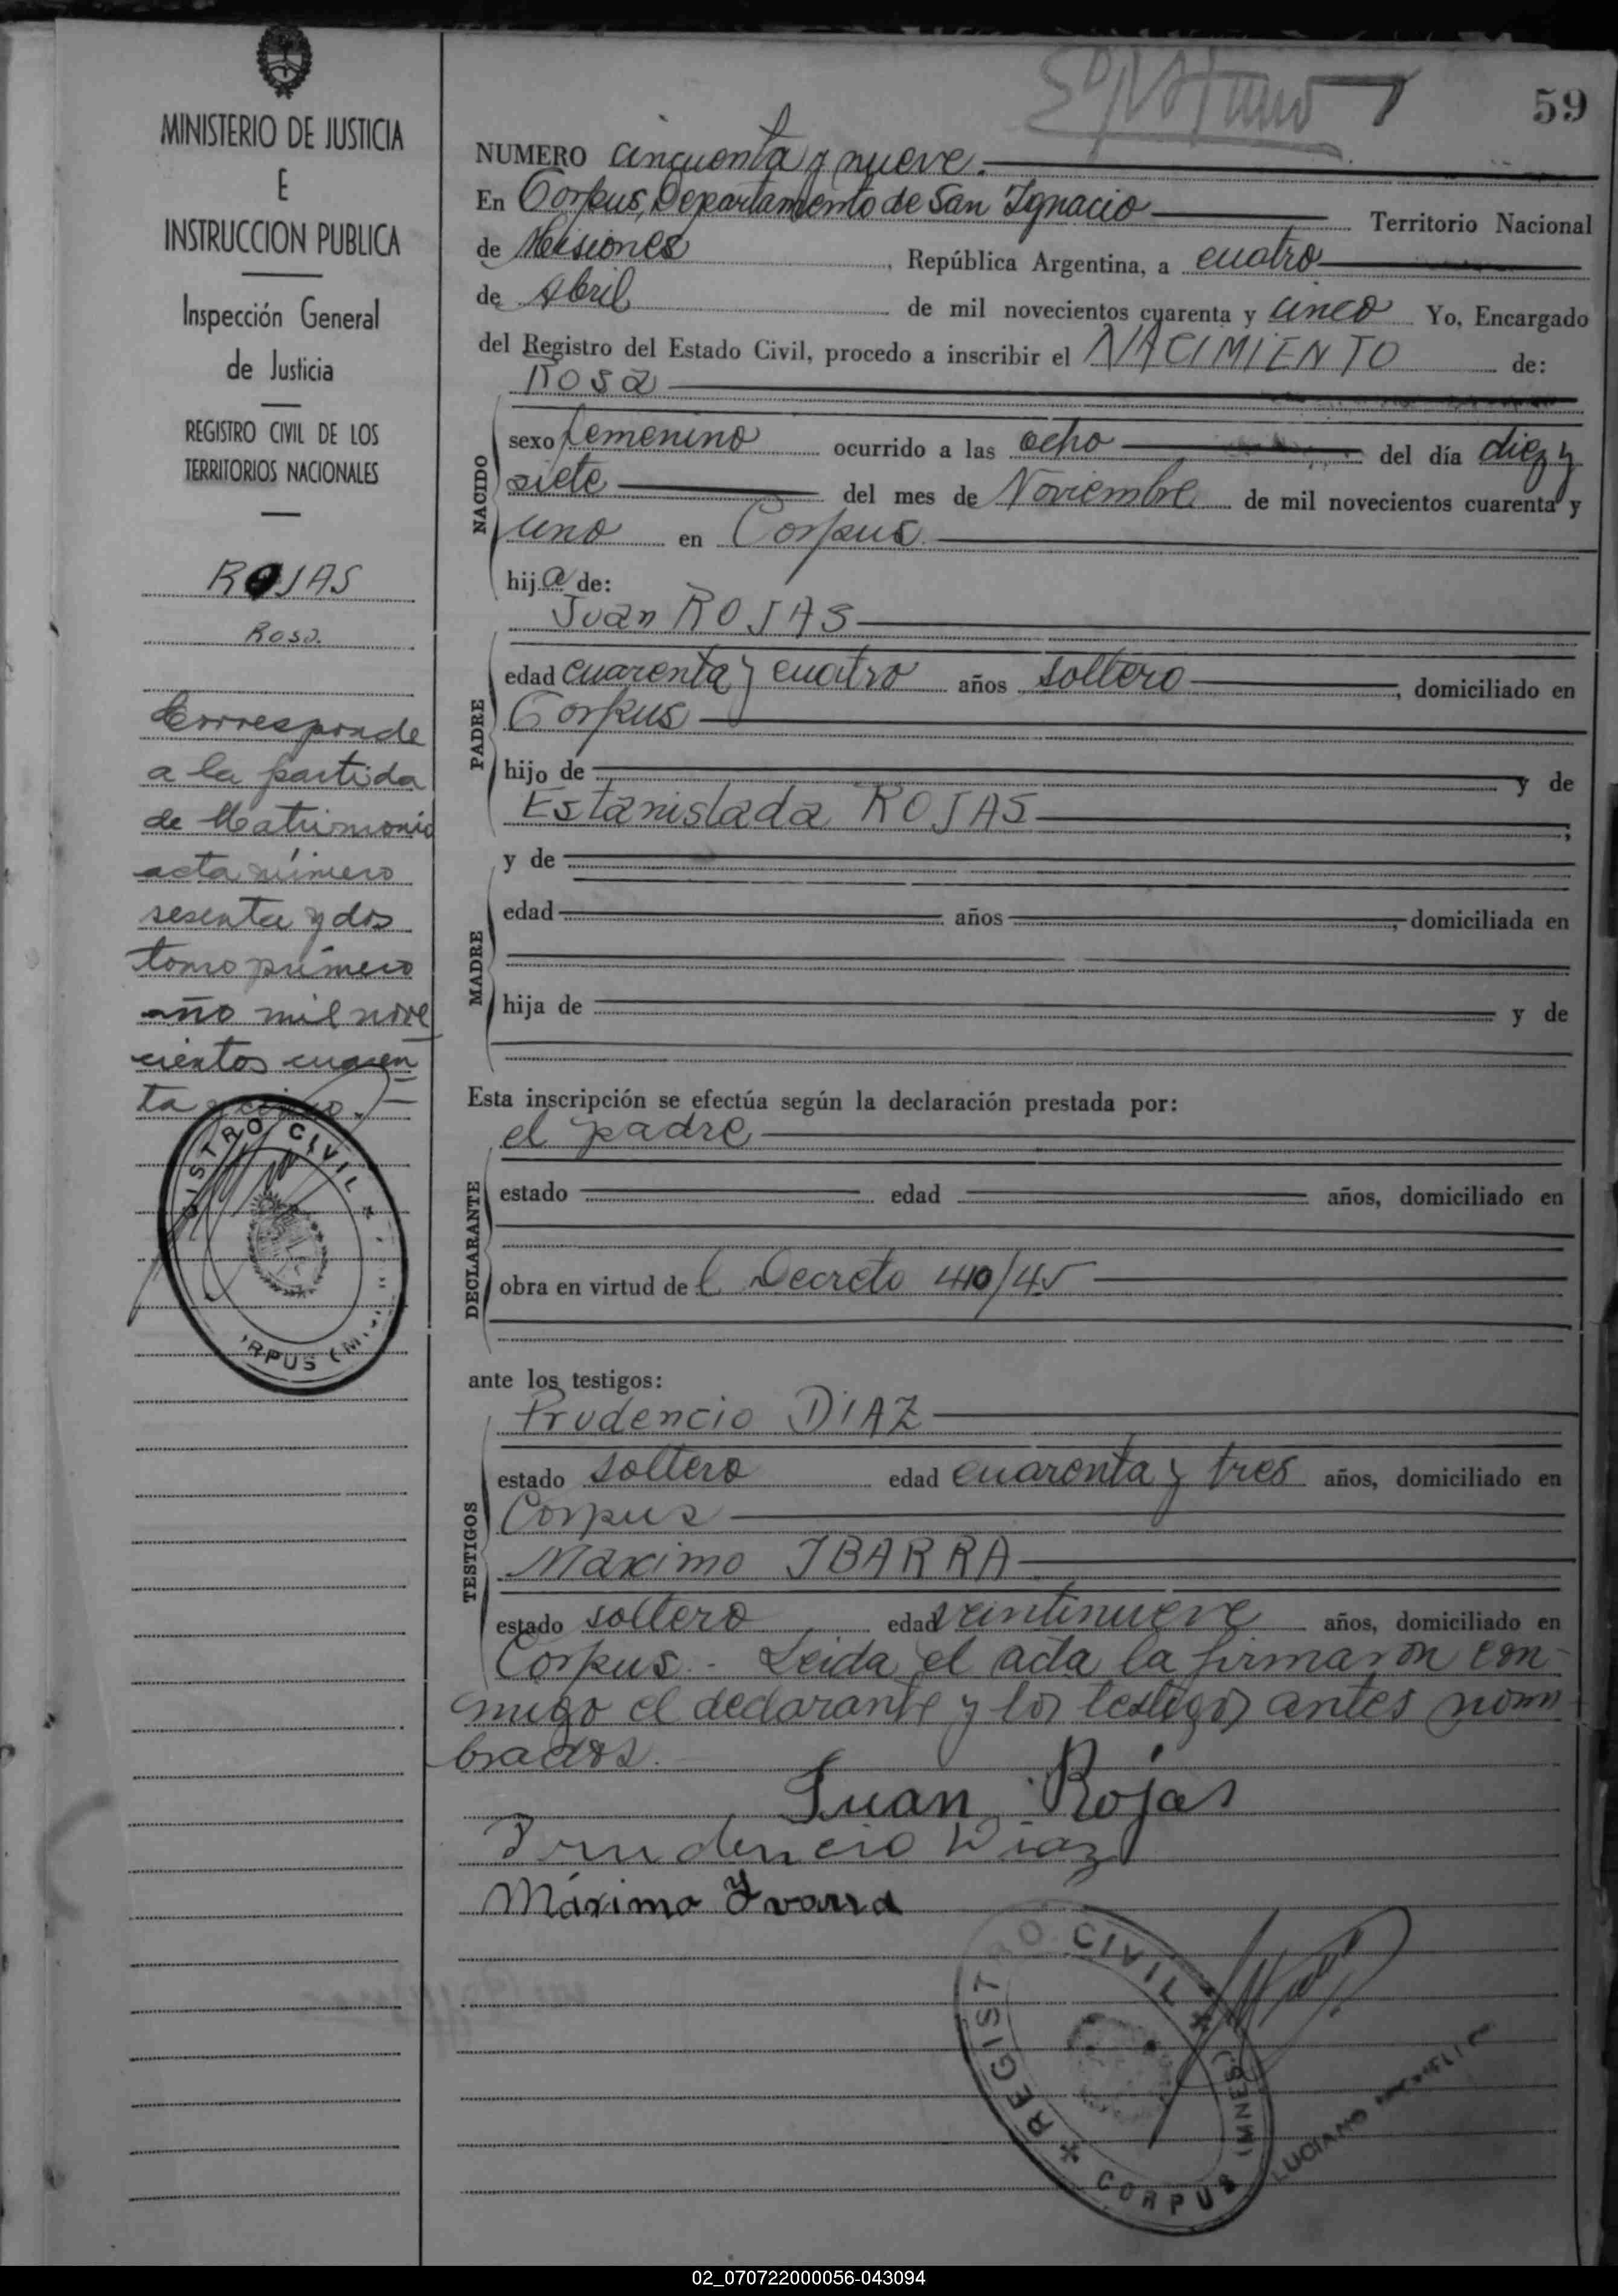 59
MINISTERIO DE JUSTICIA
E
INSTRUCCION PUBLICA
Inspección General
de Justicia
REGISTRO CIVIL DE LOS
TERRITORIOS NACIONALES
ROJAS
Rosa.
Corresponde
a la partida
de Matrimonio
acta número
sesenta y dos
tomo primero
año mil nove
cientos cuaren
ta y cinco.
ISTRO CIVIL
RPUS (M
NUMERO cincuenta y nueve.
En Corpus, Departamento de San Ignacio Territorio Nacional
de Misiones, República Argentina, a cuatro
de Abril de mil novecientos cuarenta y cinco Yo, Encargado
del Registro del Estado Civil, procedo a inscribir el NACIMIENTO de:
Rosa
NACIDO
sexo femenino ocurrido a las ocho del día diez y
siete del mes de Noviembre de mil novecientos cuarenta y
uno en Corpus
hija de:
Juan ROJAS
PADRE
edad cuarenta y cuatro años soltero, domiciliado en
Corpus
hijo de y de
Estanislada ROJAS;
MADRE
y de
edad años, domiciliada en
hija de y de
Esta inscripción se efectúa según la declaración prestada por:
el padre
DECLARANTE
estado edad años, domiciliado en
obra en virtud del Decreto 410/45
ante los testigos:
TESTIGOS
Prudencio DIAZ
estado soltero edad cuarenta y tres años, domiciliado en
Corpus
Maximo IBARRA
estado soltero edad veintinueve años, domiciliado en
Corpus.- Leida el acta la firmaron con-
migo el declarante y los testigos antes nom
brados.
Juan Rojas
Prudencio Diaz
Máximo Ivarra
REGISTRO CIVIL
CORPUS (MNES)
LUCIANO
02_070722000056-043094